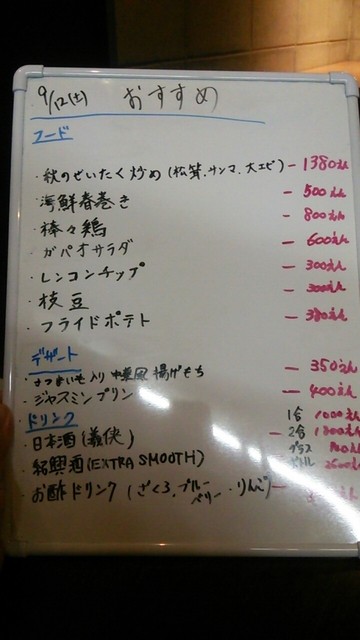 9/12(土) おすすめ
フード
・秋のぜいたく炒め(松茸、サンマ、大エビ) - 1380えん
・海鮮春巻き - 500えん
・棒々鶏 - 800えん
・ガパオサラダ - 600えん
・レンコンチップ - 300えん
・枝豆 - 300えん
・フライドポテト - 380えん
デザート
・さつまいも入り中華風揚げもち - 350えん
・ジャスミンプリン - 400えん
ドリンク 1合 1000えん
・日本酒(義侠) - 2合
・紹興酒(EXTRA SMOOTH) グラス
・お酢ドリンク (ざくろ、ブルーベリー・りんご) -